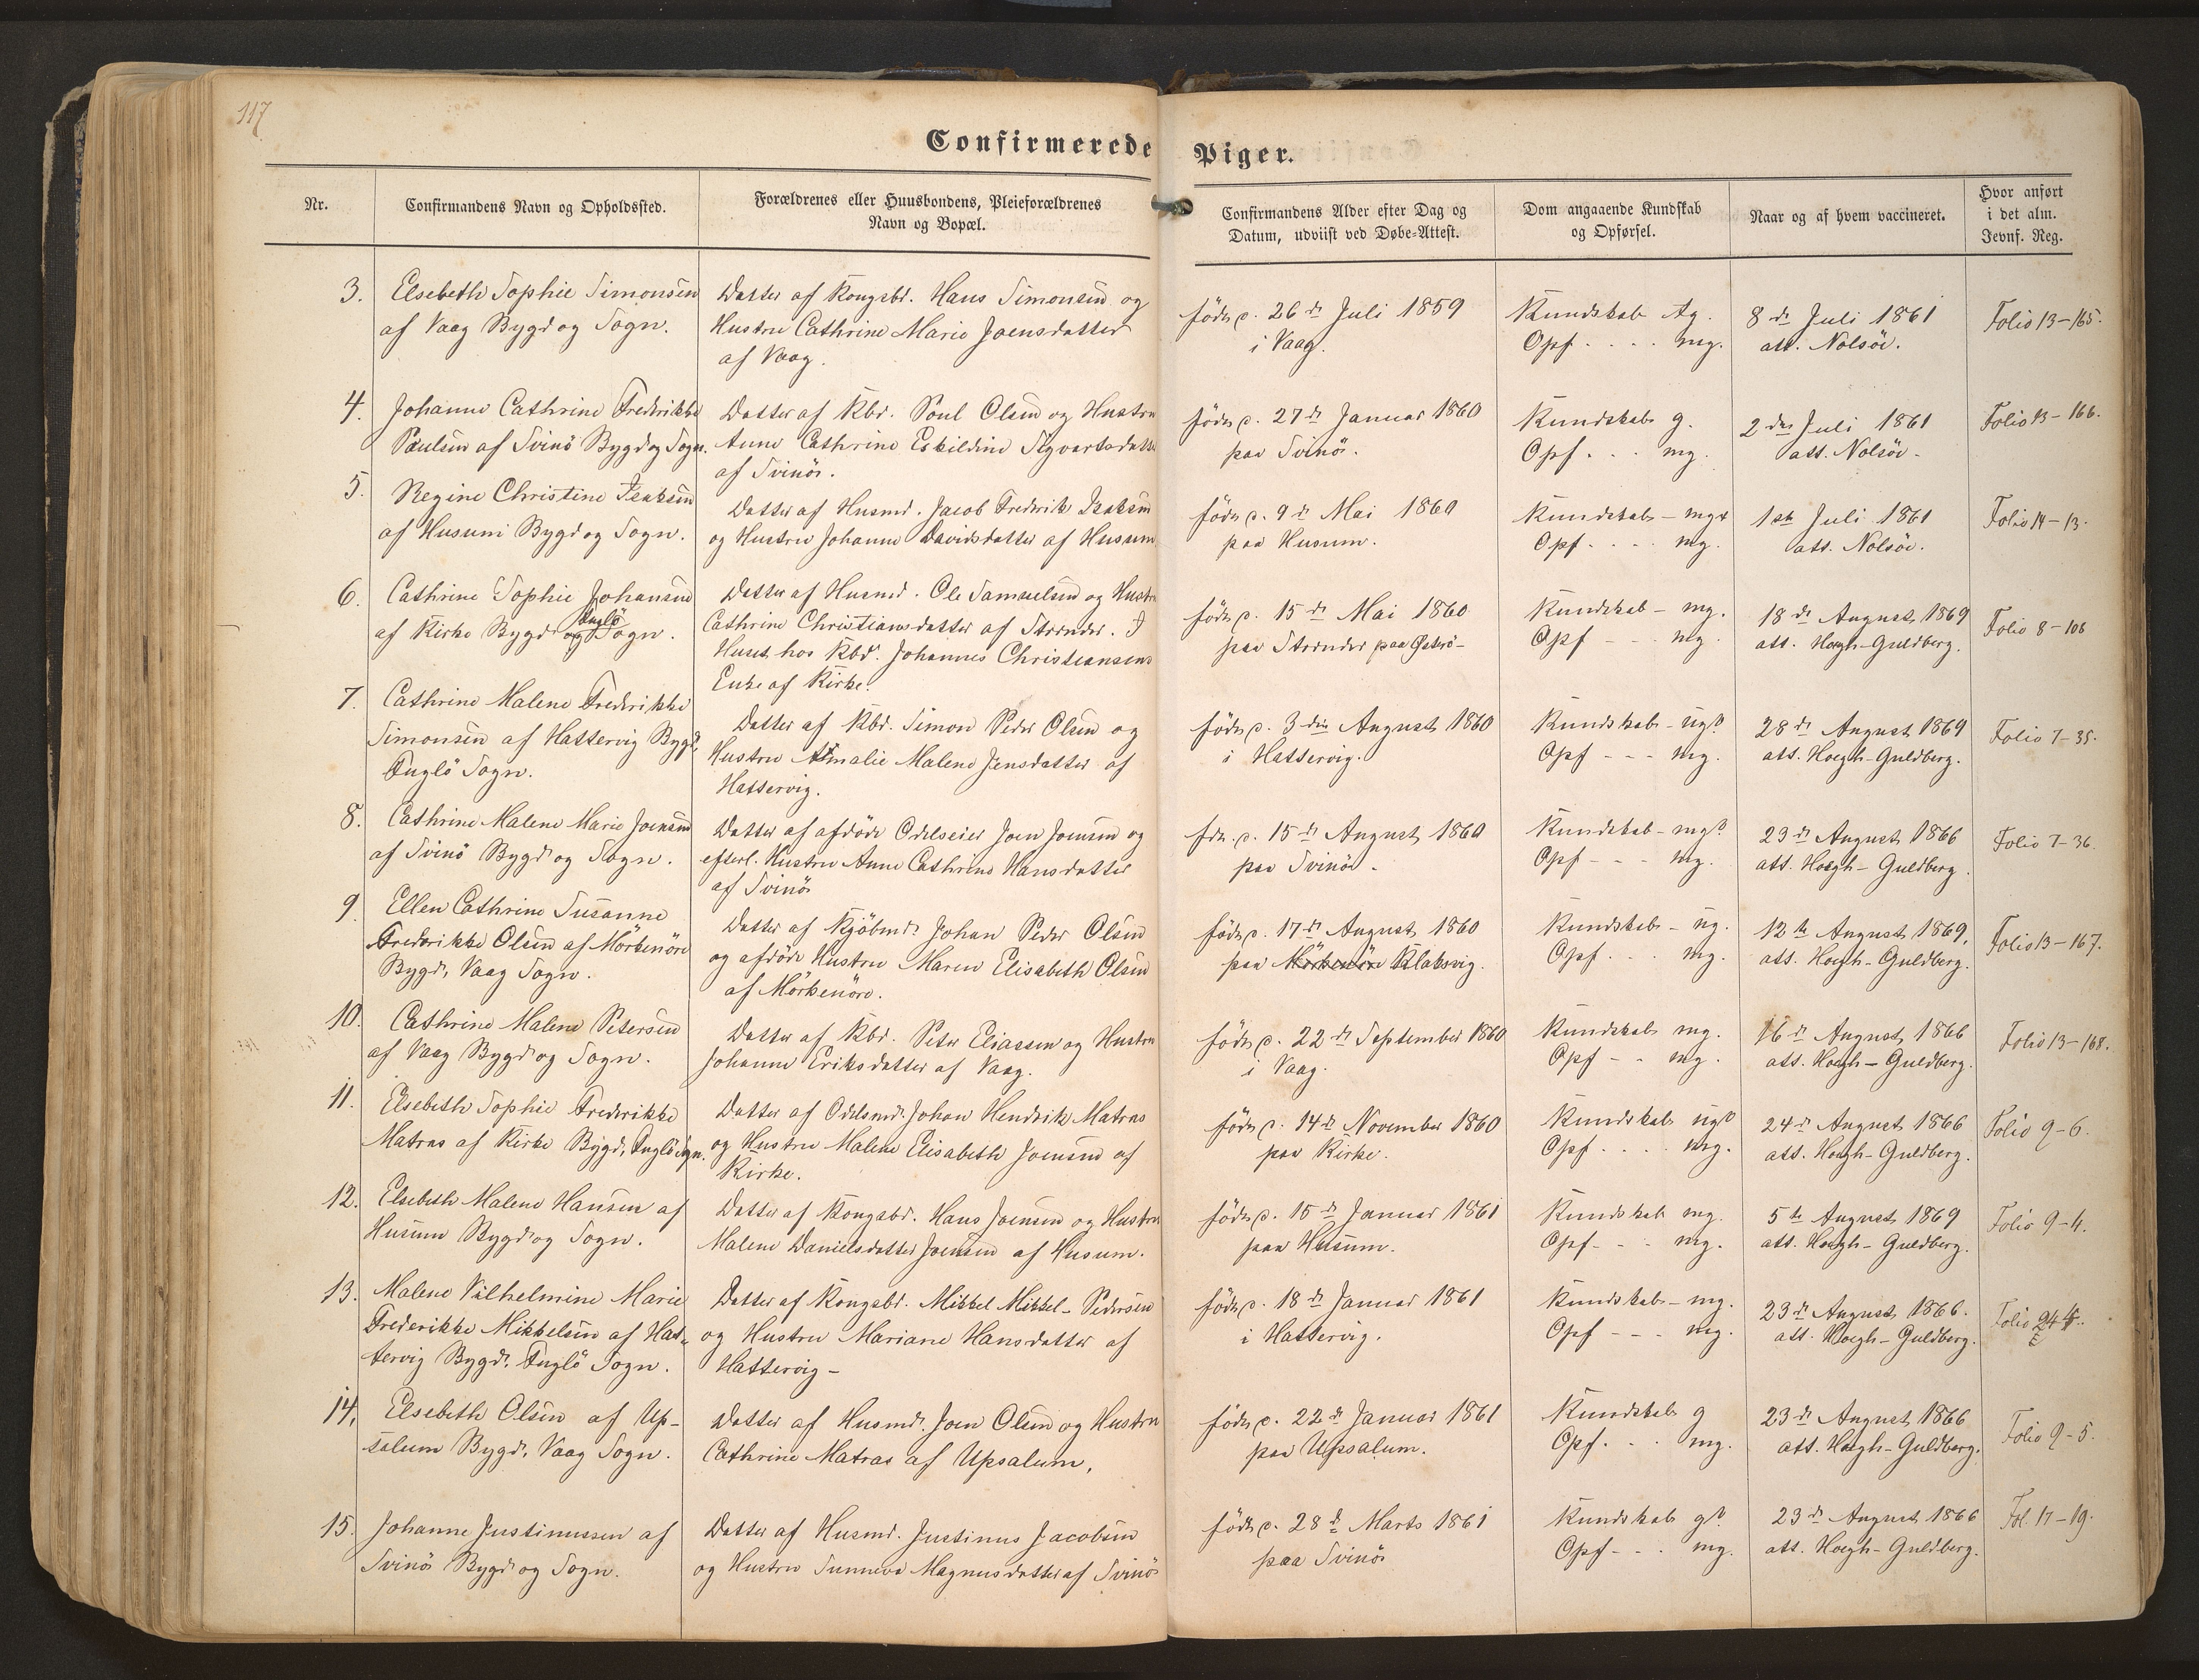 117
Confirmerede Piger.
Nr.
Confirmandens Navn og Opholdssted.
Forældrenes eller Huusbondens, Pleieforældrenes
Navn og Bopæl.
Confirmandens Alder efter Dag og
Datum, udviist ved Døbe-Attest.
Dom angaaende Kundskab
og Opførsel.
Naar og af hvem vaccineret.
Hvor anført
i det alm.
Jevnf. Reg.
3. Elsebeth Sophie Simonsen
af Vaag Bygd og Sogn.
Datter af Kongsbd. Hans Simonsen og
Hustru Cathrine Marie Joensdatter
af Vaag.
föde d. 26 de Juli 1859
i Vaag.
Kundskab tg.
Opf. . . . mg.
8 de Juli 1861
att. Nolsöe.
Folio 13-165.
4. Johanne Cathrine Frederikke
Paulsen af Svinö Bygd og Sogn.
Datter af Kbd. Poul Olsen og Hustru
Anne Cathrine Eskildine Sigvartsdatter
af Svinö.
födes d. 27 de Januar 1860
paa Svinö.
Kundskab g.
Opf. . . mg.
2 den Juli 1861
att. Nolsöe.
Folio 13-166.
5. Regine Christine Isaksen
af Husum Bygd og Sogn.
Datter af Husmd. Jacob Frederik Isaksen
og Hustru Johanne Davidsdatter af Husum
födes d. 9 de Mai 1860
paa Husum.
Kundskab - mg+
Opf. . . . mg.
1ste Juli 1861
att. Nolsöe.
Folio 14-13.
6. Cathrine Sophie Johansen
af Kirke Bygd og Fuglö Sogn.
Datter af Husmd. Ole Samuelsen og Hustru
Cathrine Christiansdatter af Strender. I
Huset hos Kbd. Johannes Christiansens
Enke af Kirke.
födes d. 15 de Mai 1860
paa Strender paa Österö-
Kundskab - mg.
Opf - - - mg.
18 de August 1869
att. Høegh-Guldberg.
Folio 8-106
7. Cathrine Malene Frederikke
Simonsen af Hattervig Bygd,
Fuglö Sogn.
Datter af Kbd. Simon Peder Olsen og
Hustru Amalie Malene Jensdatter af
Hattervig.
födes d. 3 die August 1860
i Hattervig.
Kundskab - ug?
Opf - - - mg.
28 de August 1869
att. Høegh-Guldberg.
Folio 7-35.
8. Cathrine Malene Marie Joensen
af Svinö Bygd og Sogn.
Datter af afdöde Odelseier Joen Joensen og
efterl. Hustru Anne Cathrine Hansdatter
af Svinö
fde. d. 15 de August 1860
paa Svinö.
Kundskab - mg?
Opf - - - mg.
23 de August 1866
att. Høegh-Guldberg.
Folio 7-36.
9. Ellen Cathrine Susanne
Frederikke Olsen af Mörkenöre
Bygd, Vaag Sogn.
Datter af Kjöbmd. Johan Peder Olsen
og afdöde Hustru Maren Elisabeth Olsen
af Mörkenöre.
födes d. 17 de August 1860
paa Mörkenöre Klaksvig.
Kundskab - ug.
Opf. . . mg.
12 te August 1869,
att. Høegh-Guldberg.
Folio 13-167.
10. Cathrine Malene Petersen
af Vaag Bygd og Sogn.
Datter af Kbd. Peter Eliassen og Hustru
Johanne Eriksdatter af Vaag.
födes d. 22 de September 1860
i Vaag.
Kundskab mg.
Opf - - mg.
16 de August 1866
att. Høegh-Guldberg.
Folio 13-168.
11. Elsebeth Sophie Frederikke
Matras af Kirke Bygd, Fuglö Sogn.
Datter af Odelsmd. Johan Hendrik Matras
og Hustru Malene Elisabeth Joensen af
Kirke.
födes d. 14 de November 1860
paa Kirke.
Kundskab ug?
Opf. . . . mg.
24 de August 1866
att. Høegh-Guldberg.
Folio 9-6.
12. Elsebeth Malene Hansen af
Husum Bygd og Sogn.
Datter af Kongsbd. Hans Joensen og Hustru
Malene Danielsdatter Joensen af Husum.
födes d. 15 de Januar 1861
paa Husum.
Kundskab mg.
Opf - - mg.
5 te August 1869
att. Høegh-Guldberg.
Folio 9-4.
13. Malene Vilhelmine Marie
Frederikke Mikkelsen af Hat-
tervig Bygd, Fuglö Sogn.
Datter af Kongsbd. Mikkel Mikkel-Pedersen
og Hustru Mariane Hansdatter af
Hattervig -
födes d. 18 de Januar 1861
i Hattervig.
Kundskab - mg.
Opf - - - mg.
23 de August 1866.
att. Høegh-Guldberg.
Folio
14. Elsebeth Olsen af Up-
salum Bygd, Vaag Sogn.
Datter af Husmd. Joen Olsen og Hustru
Cathrine Matras af Upsalum,
födes d. 22 de Januar 1861
paa Upsalum.
Kundskab g
Opf. . . mg.
23 de August 1866
att. Høegh-Guldberg.
Folio 9-5.
15. Johanne Justinussen af
Svinö Bygd og Sogn.
Datter af Husmd. Justinus Jacobsen
og Hustru Sunneva Magnusdatter af Svinö
födes d. 28 de Marts 1861
paa Svinö
Kundskab g?
Opf - - . mg.
23 de August 1866
att. Høegh-Guldberg.
Fol. 17-19.